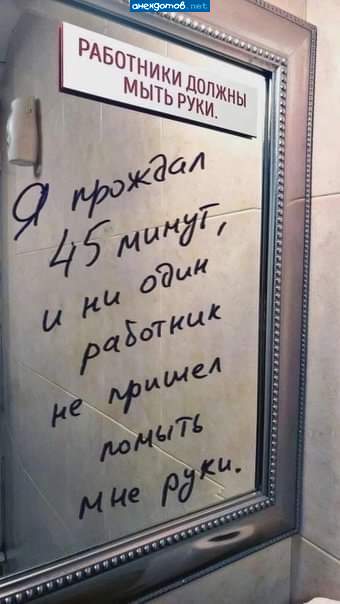 анекдотов.net
РАБОТНИКИ ДОЛЖНЫ
МЫТЬ РУКИ.
Я прождал
45 минут,
и ни один
работник
не пришел
помыть
мне руки.